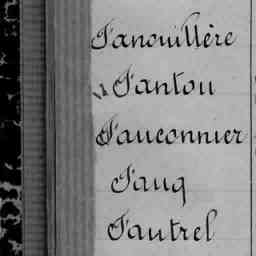 Fanouillère
Fantou
Fauconnier
Fauq
Fautrel